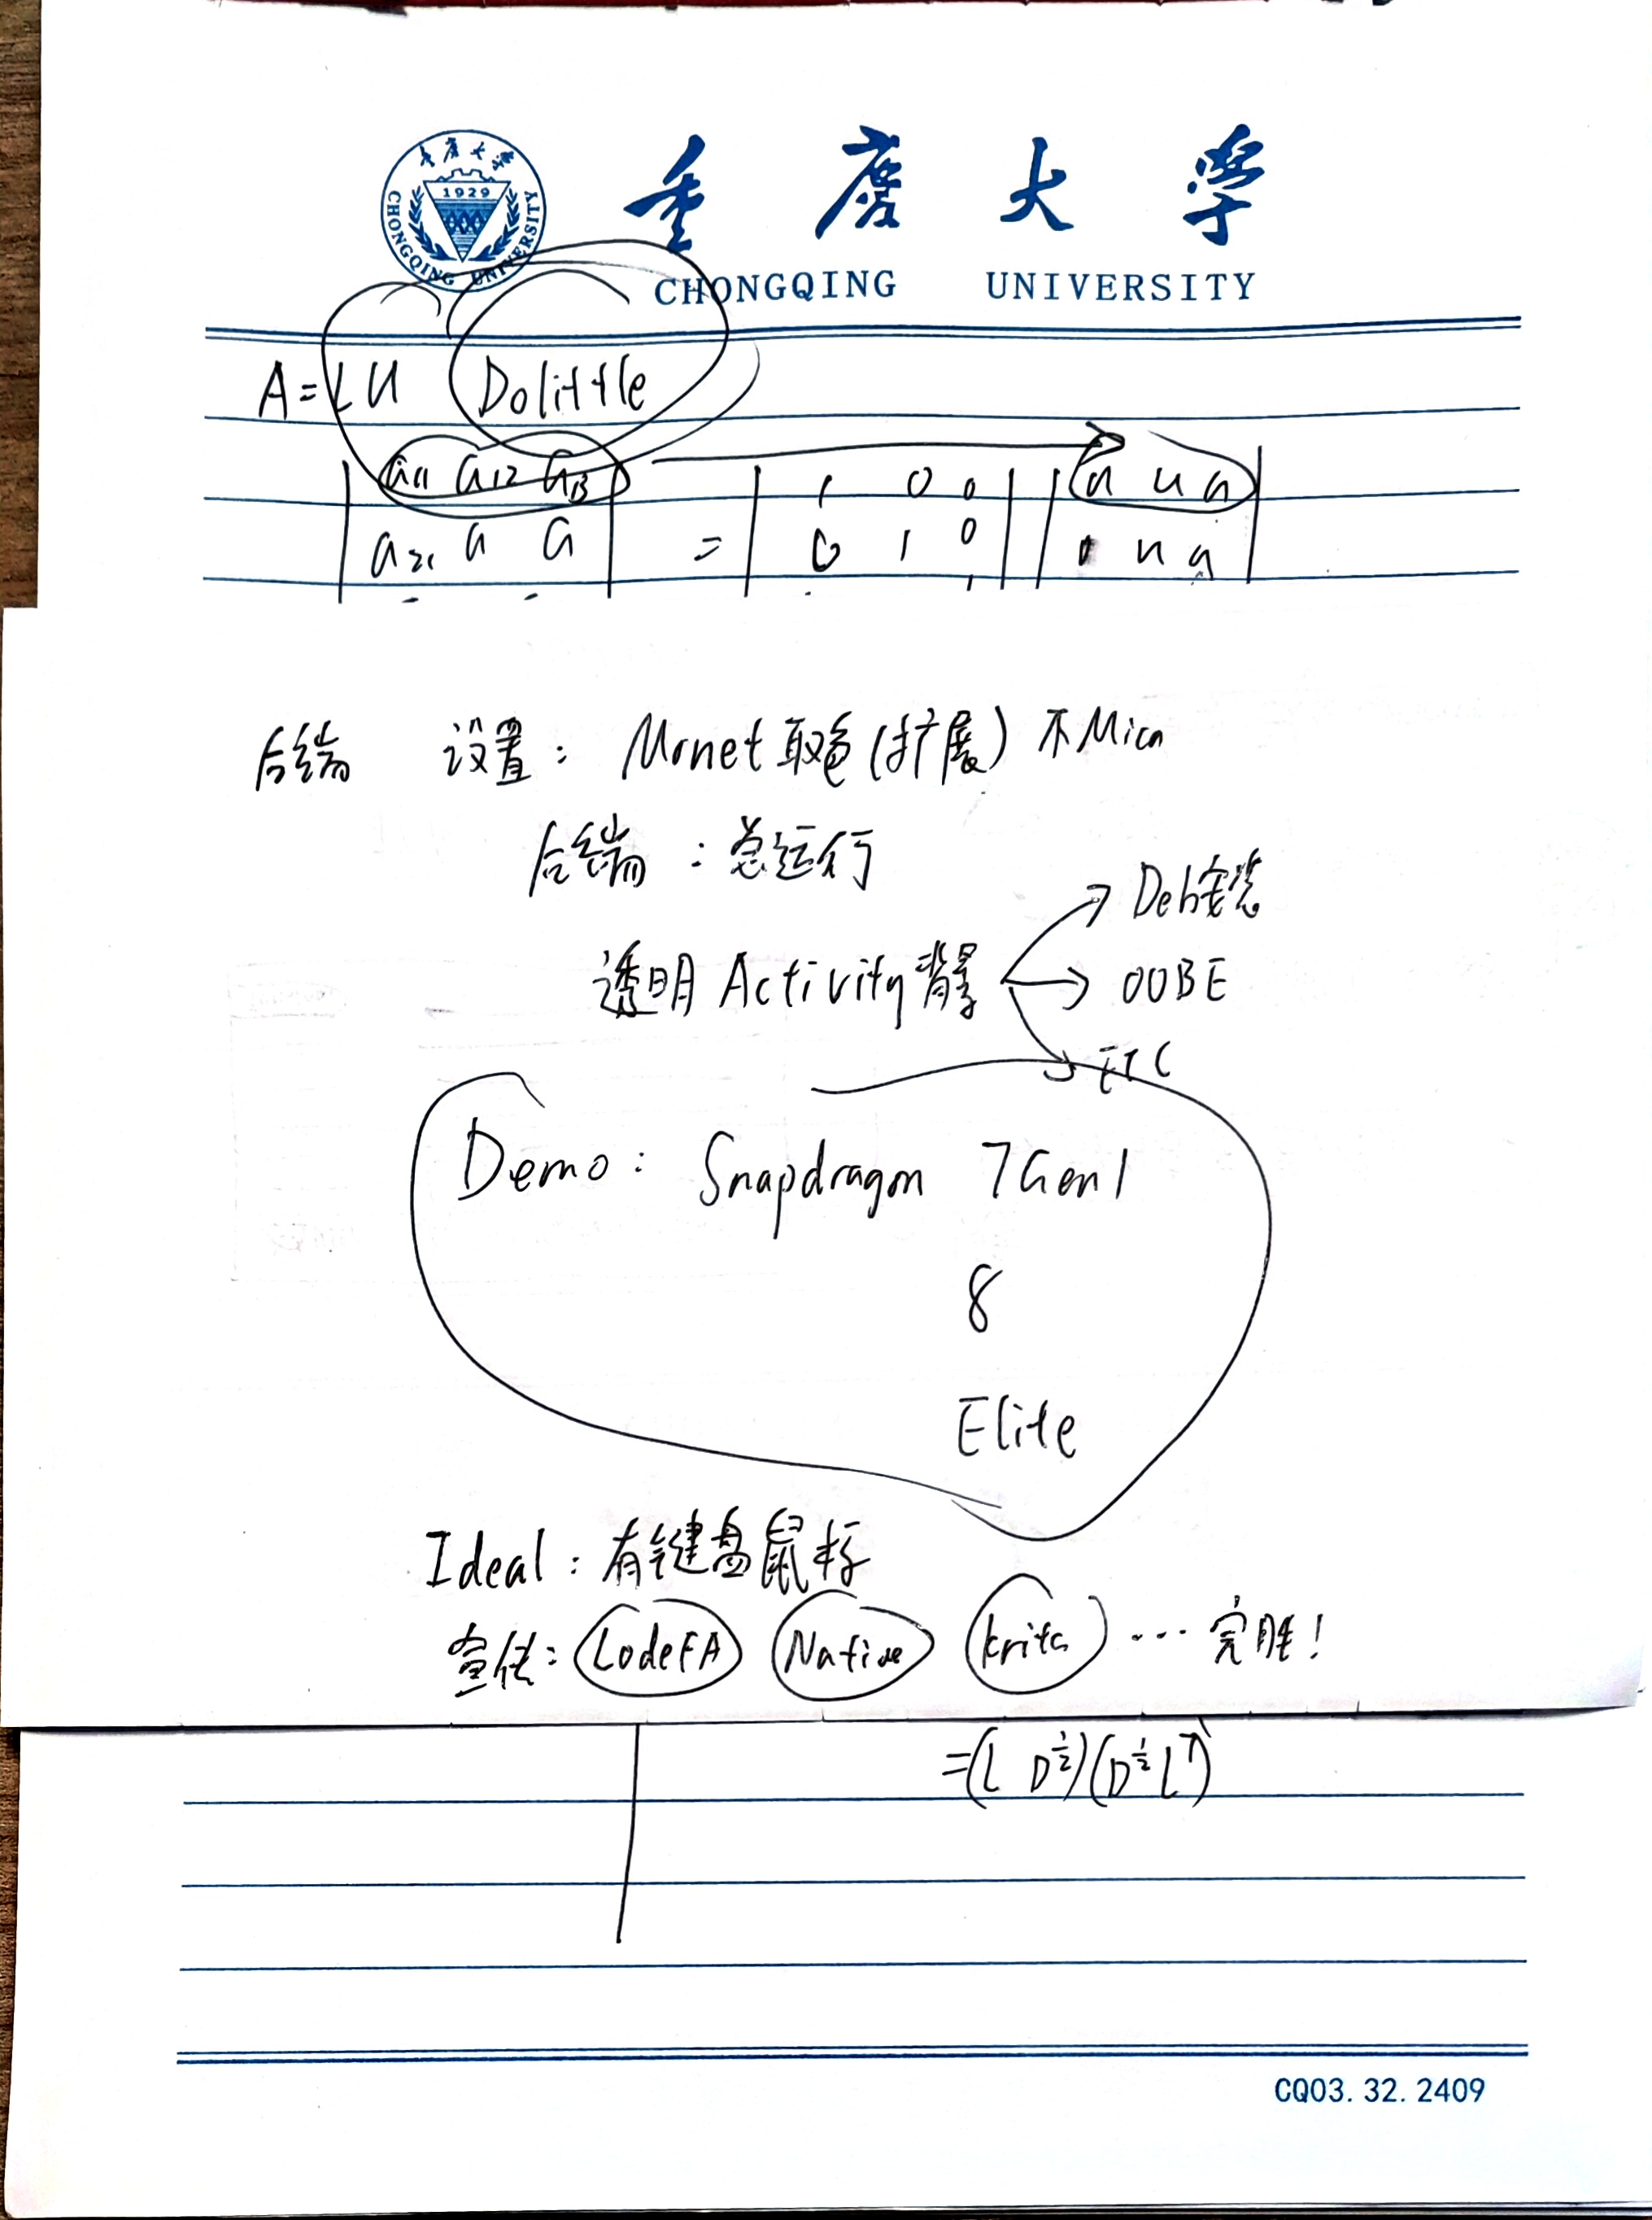 重庆大学
1929
CHONGQING UNIVERSITY
重庆大学
CHONGQING UNIVERSITY
A=LU Dolittle
a11 a12 a13 = 1 0 0 u u u
a21 a a 0 1 0 u u
后端 设置: Monet取色(扩展) 不Mica
后端 : 总运行
透明Activity背景
Deb安装
OOBE
ETC
Demo: Snapdragon 7Gen1
8
Elite
Ideal: 有键盘鼠标
宣传: CodeFA Native Krita ... 完胜!
=(L D^{1/2})(D^{1/2} L^T)
CQ03.32.2409